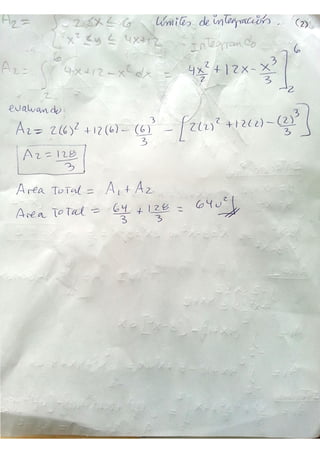 A2 = { -2 ≤ x ≤ 6 Límites de integración. (2)
x² ≤ y ≤ 4x+12 - Integrando
A2 = ∫₂⁶ 4x+12-x² dx = 4x²/2 + 12x - x³/3 ]₂⁶
evaluando:
A2 = 2(6)² + 12(6) - (6)³/3 - [2(2)² + 12(2) - (2)³/3]
A2 = 128/3
Area Total = A1 + A2
Area Total = 64/3 + 128/3 = 64u²